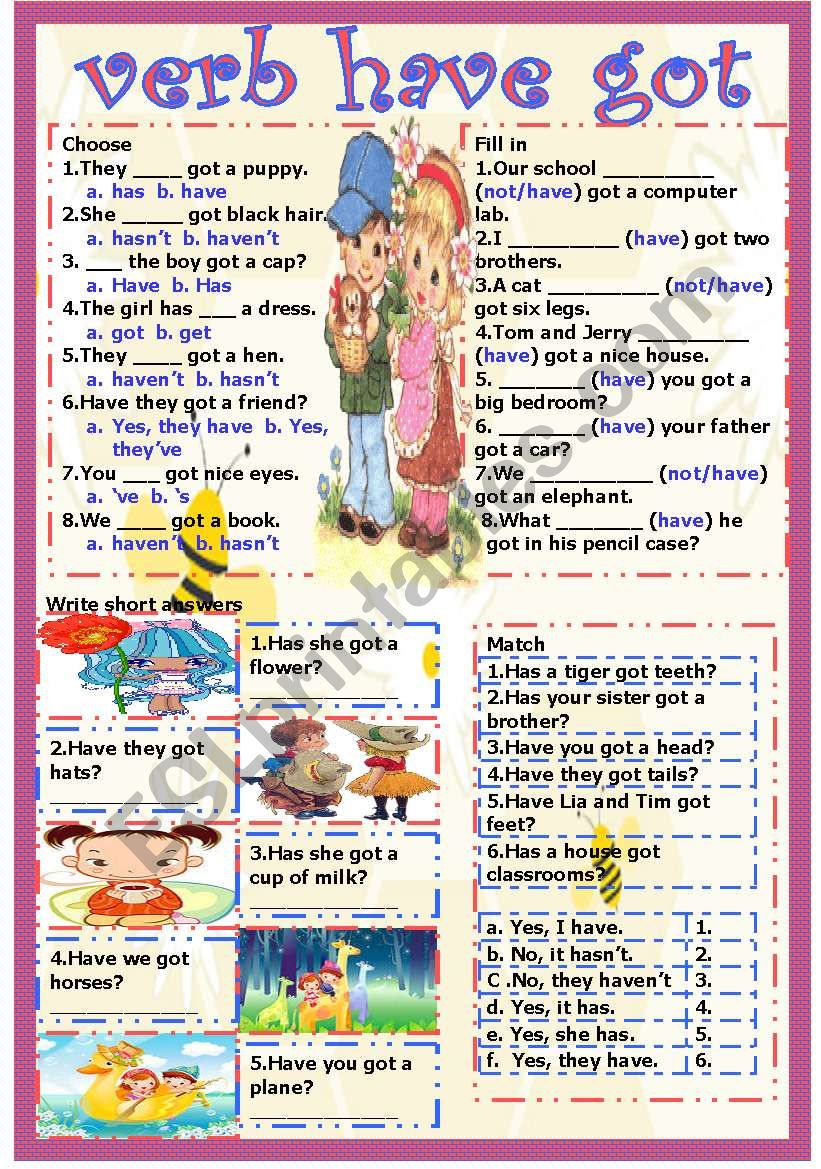 verb have got
Choose
1.They ____ got a puppy.
a. has b. have
2.She _____ got black hair.
a. hasn’t b. haven’t
3. ___ the boy got a cap?
a. Have b. Has
4.The girl has ___ a dress.
a. got b. get
5.They ____ got a hen.
a. haven’t b. hasn’t
6.Have they got a friend?
a. Yes, they have b. Yes,
they’ve
7.You ___ got nice eyes.
a. ‘ve b. ‘s
8.We ____ got a book.
a. haven’t b. hasn’t
Fill in
1.Our school _________
(not/have) got a computer
lab.
2.I _________ (have) got two
brothers.
3.A cat _________ (not/have)
got six legs.
4.Tom and Jerry _________
(have) got a nice house.
5. _______ (have) you got a
big bedroom?
6. _______ (have) your father
got a car?
7.We __________ (not/have)
got an elephant.
8.What _______ (have) he
got in his pencil case?
Write short answers
1.Has she got a
flower?
____________
2.Have they got
hats?
____________
3.Has she got a
cup of milk?
____________
4.Have we got
horses?
____________
5.Have you got a
plane?
____________
Match
1.Has a tiger got teeth?
2.Has your sister got a
brother?
3.Have you got a head?
4.Have they got tails?
5.Have Lia and Tim got
feet?
6.Has a house got
classrooms?
a. Yes, I have. 1.
b. No, it hasn’t. 2.
C .No, they haven’t 3.
d. Yes, it has. 4.
e. Yes, she has. 5.
f. Yes, they have. 6.
ESLprintables.com